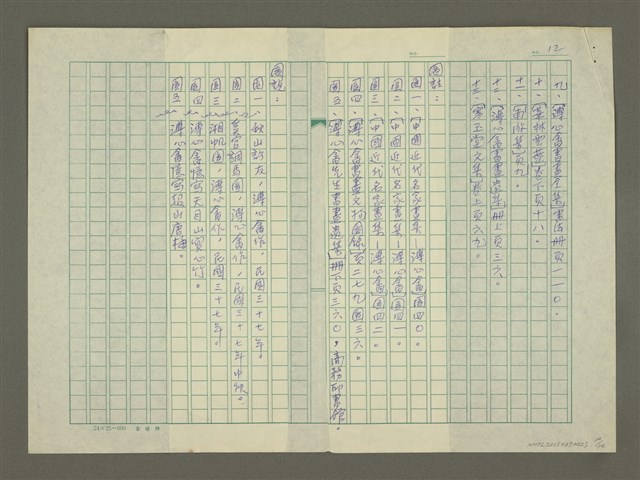 12
九、〔溥心畬書畫全集〕書法冊頁一一〇。
十、〔
卷下頁十八。
十一、
頁九。
十二、〔溥心畬書畫
集〕冊上頁三六。
十三、〔寒玉堂文集〕卷上頁六九。
圖註：
圖一、〔中國近代名家畫集—溥心畬〕圖四〇。
圖二、〔中國近代名家畫集—溥心畬〕圖四一。
圖三、〔中國近代名家畫集—溥心畬〕圖四二。
圖四、〔溥心畬書畫文物圖錄〕頁二七九圖三六。
圖五、〔溥心畬先生書畫
集〕冊下頁三六〇，商務印書館。
圖說：
圖一、秋山訪友，溥心畬作，民國三十七年。
圖二、
圖，溥心畬作，民國三十七年中秋。
圖三、湘帆圖，溥心畬作，民國三十七年。
圖四、溥心畬憶寫天目山實心竹。
圖五、溥心畬憶寫超山唐梅。
24×25=600